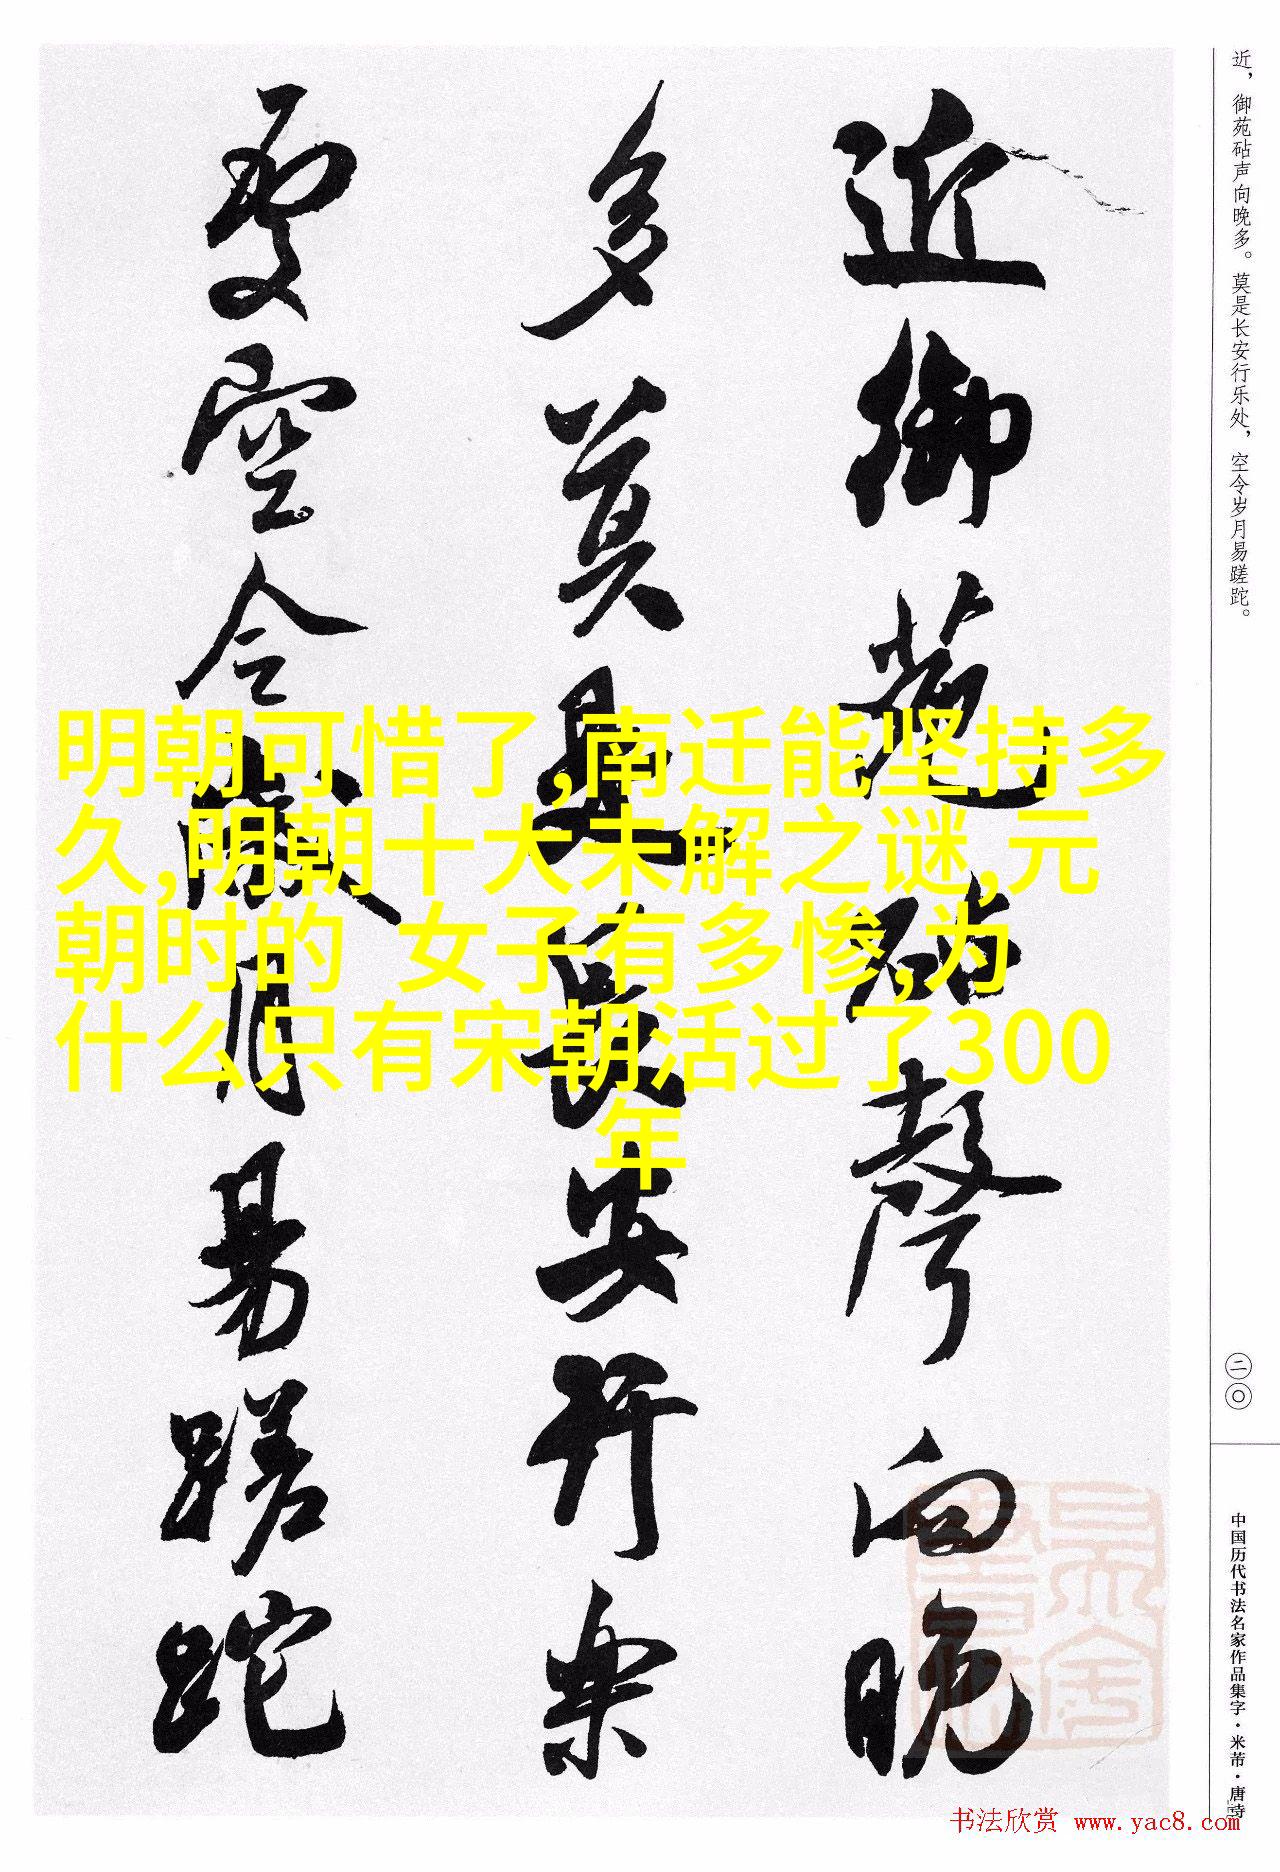 近，御苑砧声向晚多。莫是长安行乐处，空令岁月易蹉跎。
近御苑砧聲向晚
多莫是長安行樂
處空令歲月易蹉跎
明朝可惜了,南迁能坚持多
久,明朝十大未解之谜,元
朝时的 女子有多惨,为
什么只有宋朝活过了300
年
二〇
中国历代书法名家作品集字·米芾·唐诗
书法欣赏 www.yac8.com